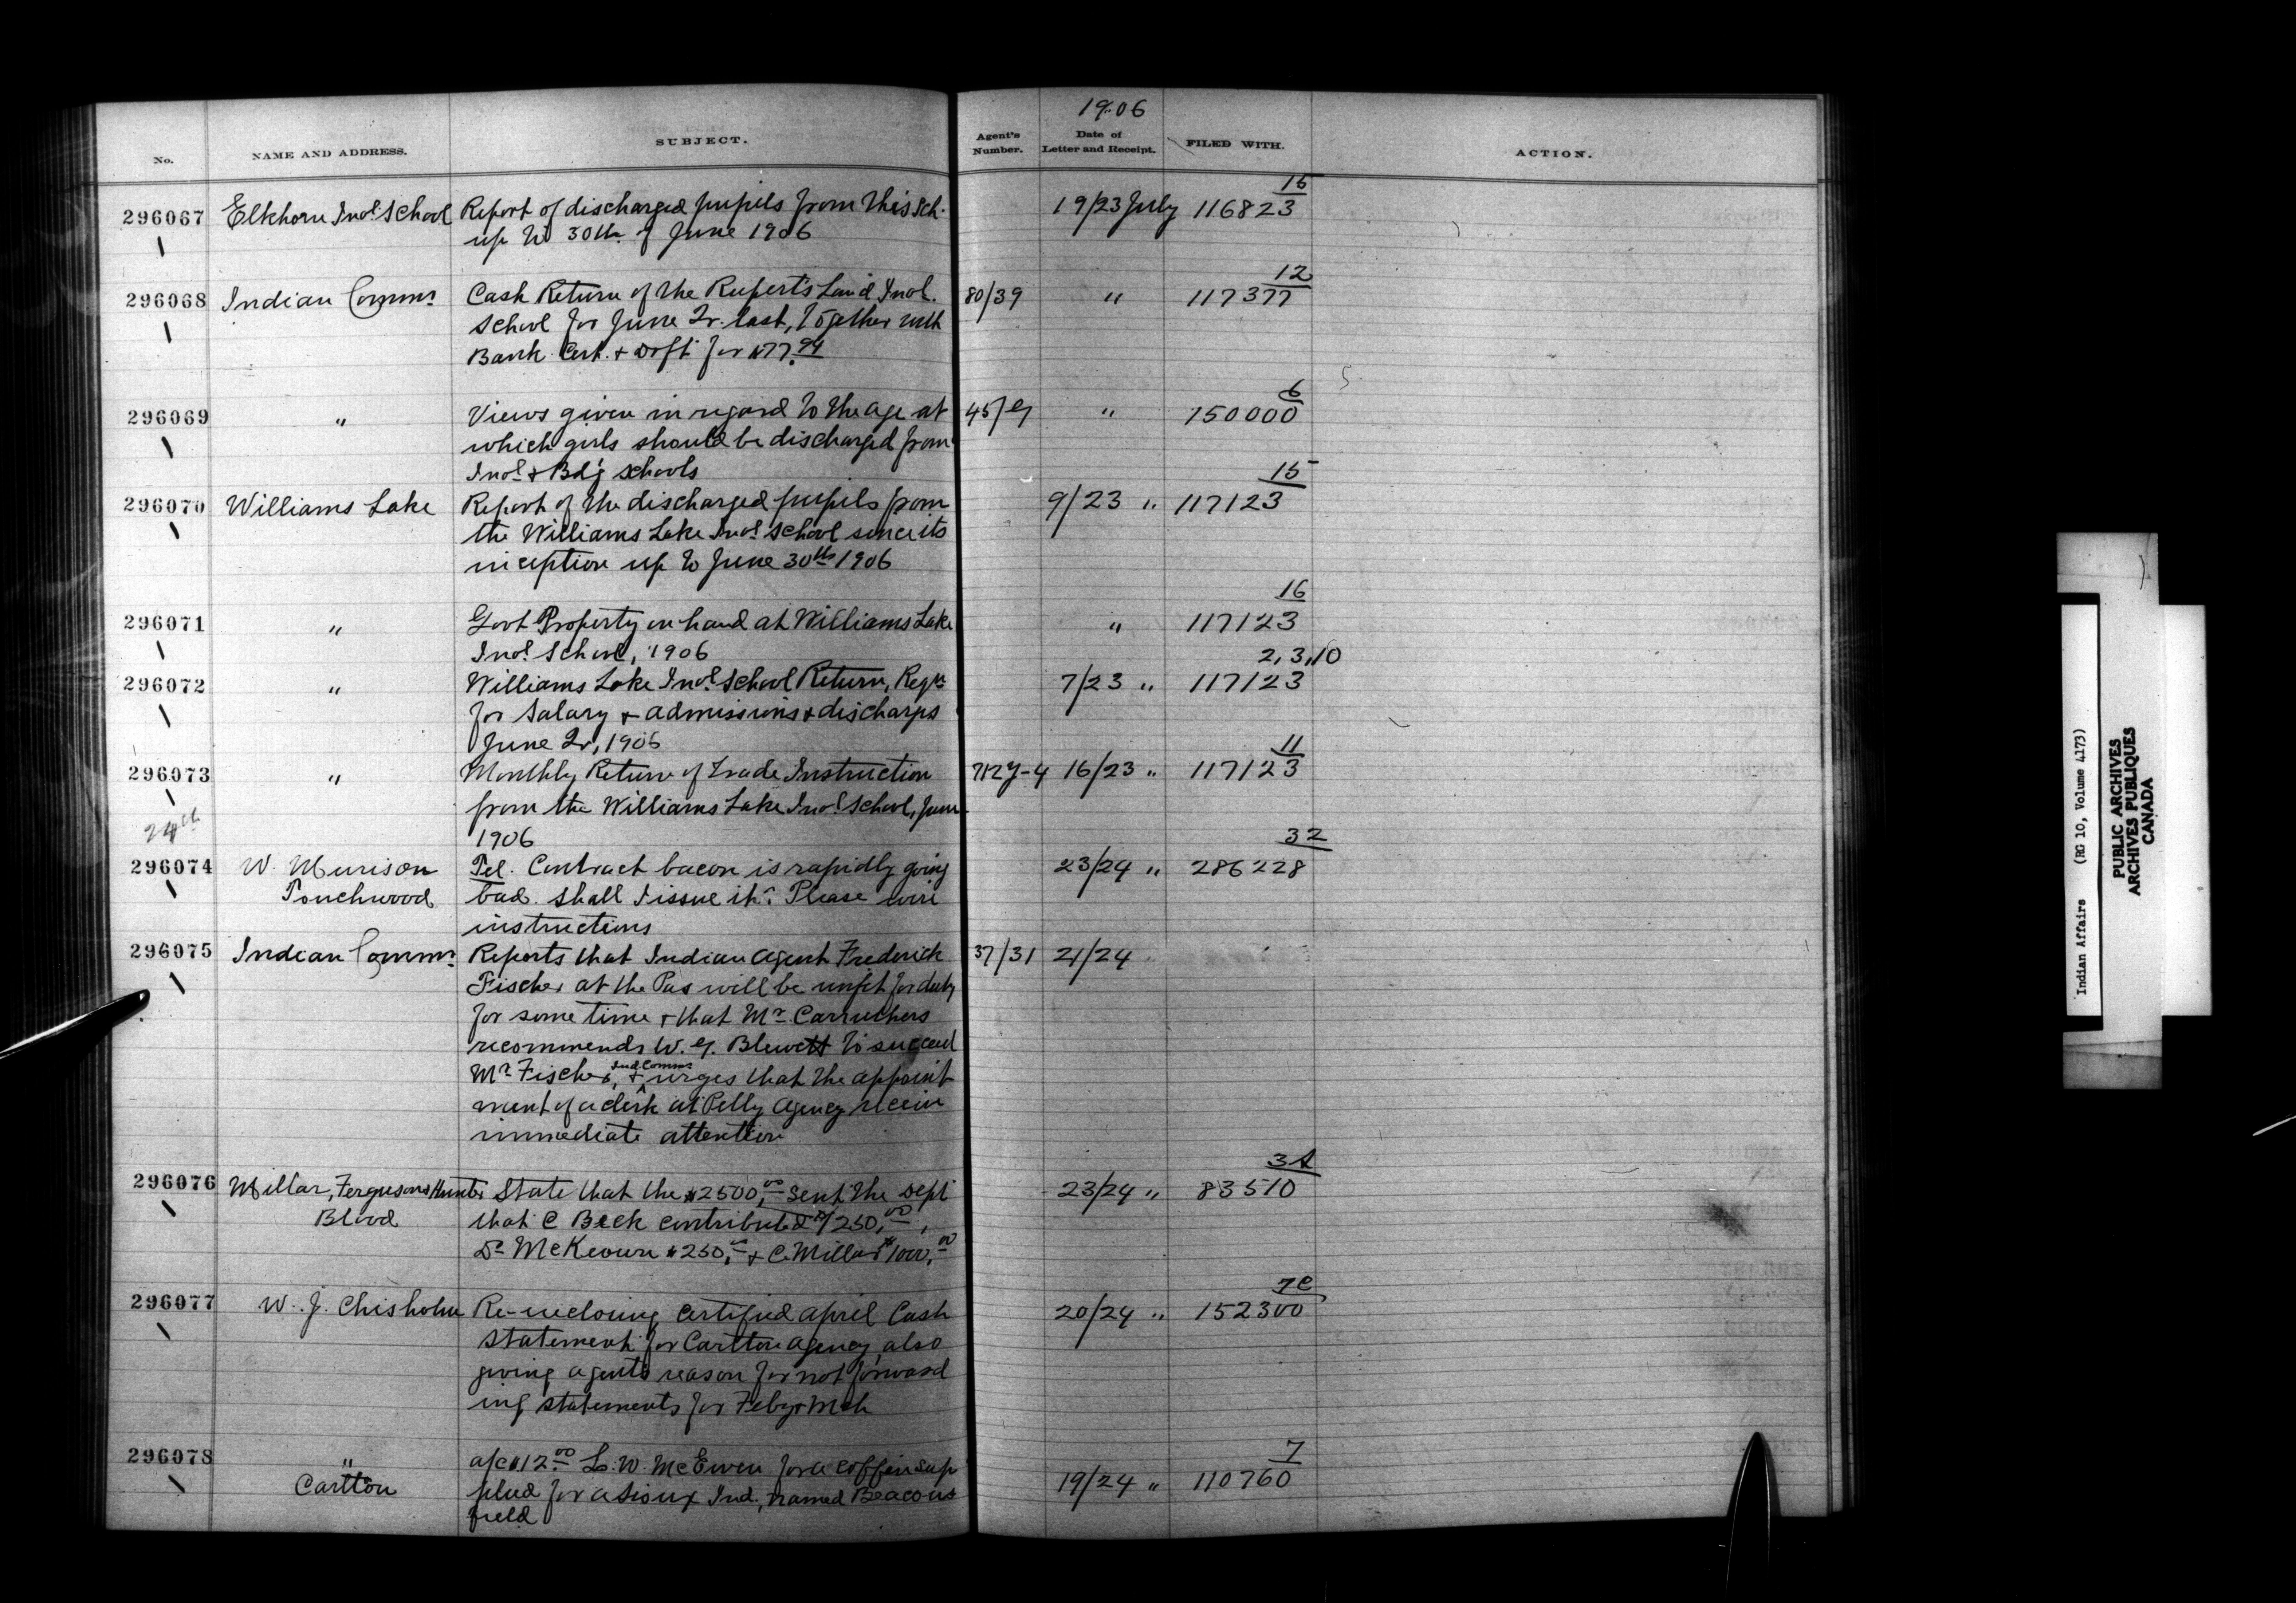 1906
No. NAME AND ADDRESS. SUBJECT. Agent's Number. Date of Letter and Receipt. FILED WITH. ACTION.
15
296067 Elkhorn Indl. School Report of discharged pupils from this Sch. 19/23 July 116823
up to 30th of June 1906
12
296068 Indian Commr Cash Return of the Ruperts Land Indl. 80/39 " 117377
School for June Qr. last, together with
Bank Cert. + Dr[]ft for $77.94
6
296069 " Views given in regard to the age at 45/ " 150000
which girls should be discharged from
Indl. + Bd'g Schools
15
296070 Williams Lake Report of the discharged pupils from 9/23 " 117123
the Williams Lake Indl. School since its
inception up to June 30th 1906
16
296071 " Govt Property on hand at Williams Lake " 117123
Indl. School, 1906
2,3,10
296072 " Williams Lake Indl. School Return, Reqn 7/23 " 117123
for Salary + admissions + discharges
June Qr, 1906
11
296073 " Monthly Return of Trade Instruction 16/23 " 117123
from the Williams Lake Indl. School, June
24th 1906
32
296074 W. Murison Tel. Contract bacon is rapidly going 23/24 " 286228
Touchwood bad. Shall I issue it? Please wire
instructions
296075 Indian Commr Reports that Indian Agent Frederick 37/31 21/24
Fischer at the Pas will be unfit for duty
for some time + that Mr. Carruthers
recommends W. G. Blewett to succeed
Mr Fischer, + Ind Commr urges that the appoint
ment of a clerk at Pelly Agency receive
immediate attention
296076 Millar, Ferguson & Hunter State that the $2500.00 sent the Dept 23/24 " 83510
Blood that C Beck contributed $1250.00,
Dr McKeown $250.00 + C. Millar $1000.00
7C
296077 W. J. Chisholm Re-inclosing certified April Cash 20/24 " 152300
statement for Carlton Agency, also
giving agents reason for not forward
ing statements for Feby + Mch
7
296078 " a/c $12.00 L. W. McEwen for a coffin sup 19/24 " 110760
Carlton plied for a Sioux Ind., named Beacons
field
Indian Affairs (RG 10, Volume 4173)
PUBLIC ARCHIVES
ARCHIVES PUBLIQUES
CANADA